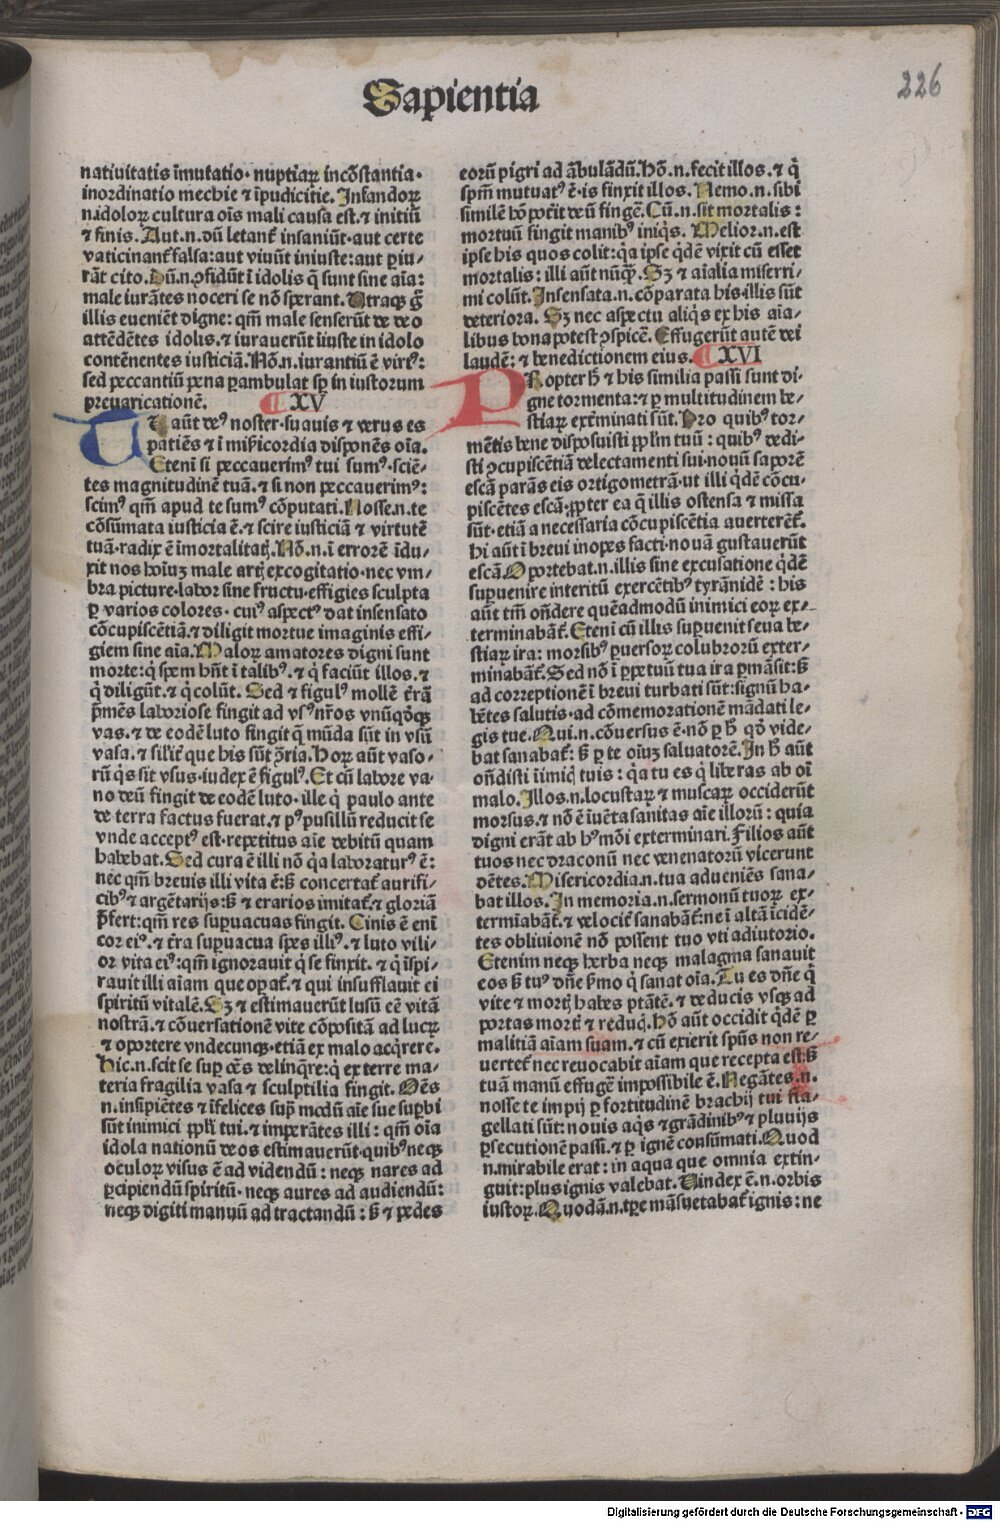 Sapientia
226
natiuitatis īmutatio· nuptiaꝝ incōstantia·
inordinatio mechie & īpudicitie. Infandoꝝ
n.idoloꝝ cultura oīs mali causa est.& initiū
& finis. Aut.n.dū letant̄ insaniūt·aut certe
vaticinant̄ falsa:aut viuūt iniuste:aut ꝑiu-
rāt cito.Dū.n.ꝯfidūt ī idolis q̄ sunt sine aīa:
male iurātes noceri se nō sperant. Utraqꝫ ḡ
illis eueniēt digne: qm̄ male senserūt de deo
attēdētes idolis.& iurauerūt īiuste in idolo
contēnentes iusticiā. Nō.n.iurantiū ē virt⁹:
sed peccantiū pena ꝑambulat sp̄ in iustorum
preuaricationē. XV
TU aūt de⁹ noster·suauis & verus es
patiēs & ī mis̄icordia disponēs oīa.
Etenī si peccauerim⁹ tui sum⁹·sciē-
tes magnitudinē tuā.& si non peccauerim⁹:
scim⁹ qm̄ apud te sum⁹ cōputati.Nosse.n.te
cōsūmata iusticia ē.& scire iusticiā & virtutē
tuā·radix ē īmortalitatꝭ.Nō.n.ī errorē īdu-
xit nos hoīuꝫ male artꝭ excogitatio·nec vm-
bra picture·labor sine fructu·effigies sculpta
ꝑ varios colores· cui⁹ aspect⁹ dat insensato
cōcupiscētiā.& diligit mortue imaginis effi-
giem sine aīa. Maloꝝ amatores digni sunt
morte:q̇ spem hn̄t ī talib⁹.& q̇ faciūt illos.&
q̇ diligūt.& q̇ colūt. Sed & figul⁹ mollē t̄rā
p̄mēs laboriose fingit ad vs⁹ nr̄os vnūqd̄qꝫ
vas.& de eodē luto fingit q̄ mūda sūt in vsū
vasa.& silit̄ que his sūt ꝯ̄ria.Hoꝝ aūt vaso-
rū q̇s sit vsus·iudex ē figul⁹.Et cū labore va-
no deū fingit de eodē luto·ille q̇ paulo ante
de terra factus fuerat.& p⁹ pusillū reducit se
vnde accept⁹ est·repetitus aīe debitū quam
habebat.Sed cura ē illi nō q̇a laboratur⁹ ē:
nec qm̄ breuis illi vita ē:sꝫ concertat̄ aurifi-
cib⁹ & argētarijs:sꝫ & erarios imitat̄.& gloriā
p̄fert:qm̄ res suꝑuacuas fingit. Cinis ē enī
cor ei⁹.& t̄ra suꝑuacua spes illi⁹.& luto vili-
or vita ei⁹:qm̄ ignorauit q̇ se finxit. & q̇ īspi-
rauit illi aīam que opat̄.& qui insufflauit ei
spiritū vitalē.Sꝫ & estimauerūt lusū eē vitā
nostrā.& cōuersationē vite cōpositā ad lucꝝ
& oportere vndecunqꝫ·etiā ex malo acq̇rere.
Hic.n.scit se suꝑ oēs delinq̄re:q̇ ex terre ma-
teria fragilia vasa & sculptilia fingit. Oēs
n.insipiētes & īfelices sup̄ modū aīe sue suꝑbi
sūt inimici ppl̄i tui.& imperātes illi: qm̄ oīa
idola nationū deos estimauerūt·quib⁹ neqꝫ
oculoꝝ visus ē ad videndū: neqꝫ nares ad
ꝑcipiendū spiritū· neqꝫ aures ad audiendū:
neqꝫ digiti manuū ad tractandū: sꝫ & pedes
eorū pigri ad ābulādū.Hō.n.fecit illos.& q̇
spm̄ mutuat⁹ ē·is finxit illos. Nemo.n.sibi
similē hō poterit deū fingē.Cū.n.sit mortalis:
mortuū fingit manib⁹ iniq̇s. Melior.n.est
ipse his quos colit:q̇a ipse q̇dē vixit cū esset
mortalis:illi aūt nūq̄ꝫ.Sꝫ & aīalia miserri-
mi colūt.Insensata.n.cōparata his·illis sūt
deteriora. Sꝫ nec aspectu aliq̇s ex his aīa-
libus bona potest ꝯspicē. Effugerūt autē dei
laudē: & benedictionem eius. XVI
PRopter h̄ & his similia passi sunt di-
gne tormenta:& ꝑ multitudinem be-
stiaꝝ extērminati sūt. Pro quib⁹ tor-
mētis bene disposuisti ppl̄m tuū: quib⁹ dedi-
sti ꝯcupiscētiā delectamenti sui·nouū saporē
escā parās eis ortigometrā·ut illi q̇dē cōcu-
piscētes escā·ꝓpter ea q̄ illis ostensa & missa
sūt·etiā a necessaria cōcupiscētia auerterēt̄.
hi aūt ī breui inopes facti·nouā gustauerūt
escā.Oportebat.n.illis sine excusatione q̇dē
suꝑuenire interitū exercētib⁹ tyrānidē: his
aūt tm̄ on̄dere quēadmodū inimici eoꝝ ex-
terminabāt̄.Etenī cū illis suꝑuenit seua be-
stiaꝝ ira: morsib⁹ ꝑuersoꝝ colubrorū exter-
minabāt̄.Sed nō ī ꝑpetuū tua ira ꝑmāsit:sꝫ
ad correptionē ī breui turbati sūt:signū ha-
bētes salutis·ad cōmemorationē mādati le-
gis tue.Qui.n.cōuersus ē·nō ꝑ h̄ qd̄ vide-
bat sanabat̄: sꝫ ꝑ te oīuꝫ saluatorē.In h̄ aūt
on̄disti īimicꝭ tuis: q̇a tu es q̇ liberas ab oī
malo.Illos.n.locustaꝝ & muscaꝝ occiderūt
morsus.& nō ē īuēta sanitas aīe illorū: quia
digni erāt ab h⁹mōi exterminari.Filios aūt
tuos nec draconū nec venenatorū vicerunt
dētes. Misericordia.n.tua adueniēs sana-
bat illos. In memoria.n.sermonū tuoꝝ ex-
termīabāt̄.& velocit̄ sanabāt̄:ne ī altā īcidē-
tes obliuionē nō possent tuo vti adiutorio.
Etenim neqꝫ herba neqꝫ malagma sanauit
eos sꝫ tu⁹ dn̄e ẜmo q̇ sanat oīa.Tu es dn̄e q̇
vite & mortꝭ habes ptātē.& deducis vsqꝫ ad
portas mortꝭ & reducꝭ.Hō aūt occidit q̇dē ꝑ
malitiā aīam suam.& cū exierit spūs non re-
uertet̄ nec reuocabit aīam que recepta est:sꝫ
tuā manū effugē impossibile ē.Negātes.n.
nosse te impij ꝑ fortitudinē brachij tui fla-
gellati sūt:nouis aq̇s & grādinib⁹ & pluuijs
ꝑsecutionē passi.& ꝑ ignē consūmati.Quod
n.mirabile erat: in aqua que omnia extin-
guit:plus ignis valebat.Uindex ē.n.orbis
iustoꝝ.Quodā.n.tꝑe māsuetabat̄ ignis: ne
Digitalisierung gefördert durch die Deutsche Forschungsgemeinschaft - DFG